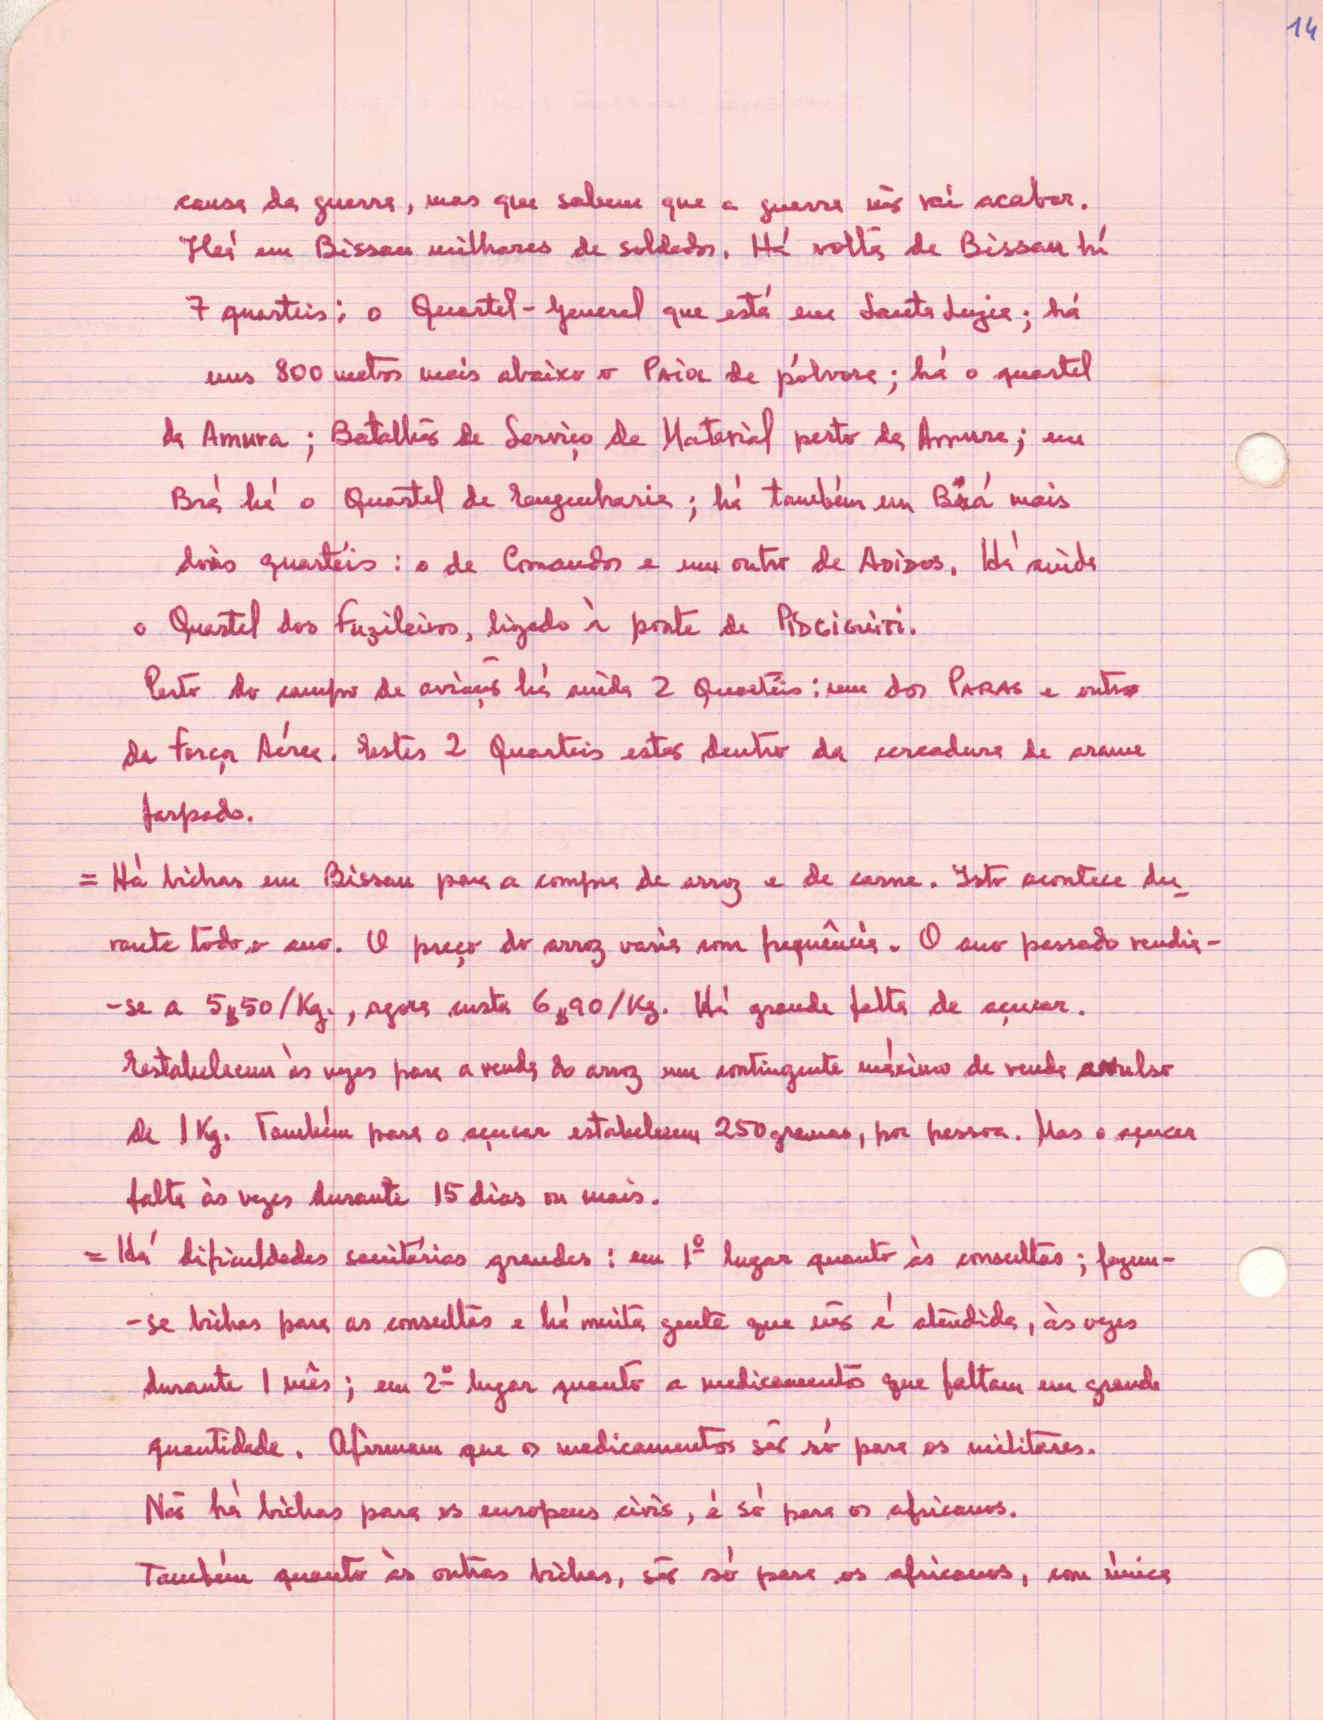 14
causa da guerra, mas que sabem que a guerra não vai acabar.
Há em Bissau milhares de soldados. Há volta de Bissau há
7 quarteis; o Quartel-General que está em Santa Luzia; há
uns 800 metros mais abaixo o PAiol de pólvora; há o quartel
da Amura; Batalhão de Serviço de Material perto da Amura; em
Brá há o Quartel de Engenharia; há também em Brá mais
dois quartéis: o de Comandos e um outro de ADIDOS. Há ainda
o Quartel dos Fuzileiros, ligado à ponte de PiDGiGuiTi.
Perto do campo de aviação há ainda 2 Quartéis: um dos PARAS e outro
da Força Aérea. Estes 2 Quarteis estão dentro da cercadura de arame
farpado.
= Há bichas em Bissau para a compra de arroz e de carne. Isto acontece du-
rante todo o ano. O preço do arroz varia com frequência. O ano passado vendia-
-se a 5$50/Kg., agora custa 6$90/Kg. Há grande falta de açucar.
Estabelecem às vezes para a venda do arroz um contingente máximo de venda avulso
de 1 Kg. Também para o açucar estabelecem 250 gramas, por pessoa. Mas o açucar
falta às vezes durante 15 dias ou mais.
= Há dificuldades sanitárias grandes: em 1º lugar quanto às consultas; fazem-
-se bichas para as consultas e há muita gente que não é atendida, às vezes
durante 1 mês; em 2º lugar quanto a medicamentos que faltam em grande
quantidade. Afirmam que os medicamentos são só para os militares.
Não há bichas para os europeus civis, é só para os africanos.
Também quanto às outras bichas, são só para os africanos, com única